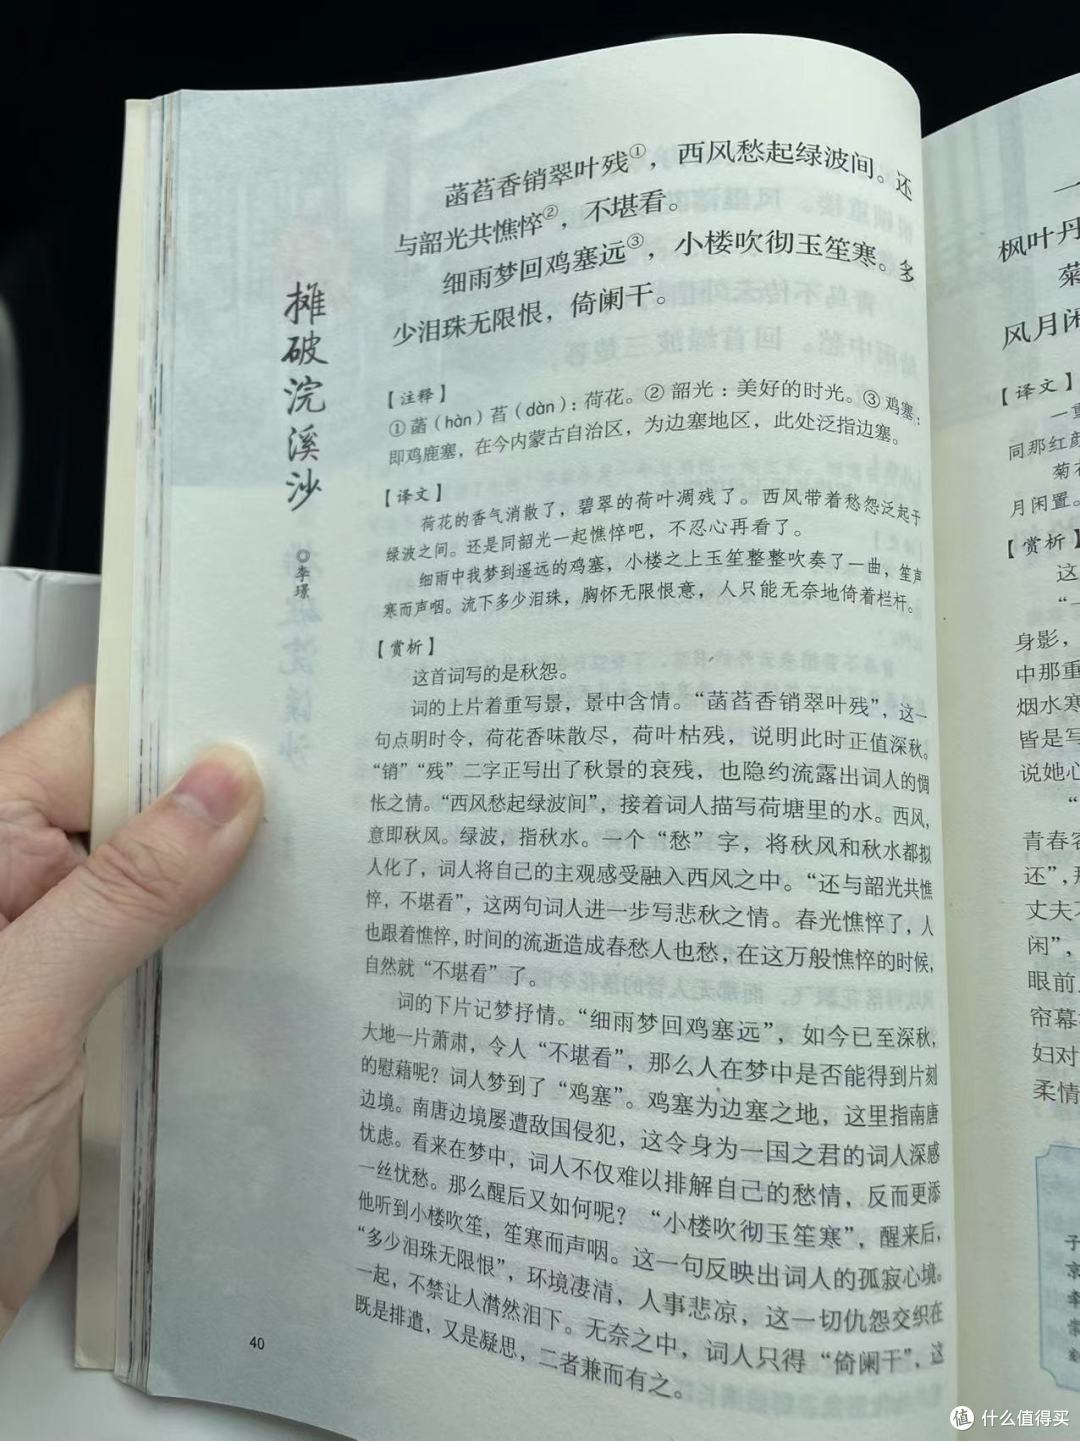 摊破浣溪沙
李璟
菡萏香销翠叶残①，西风愁起绿波间。还
与韶光共憔悴②，不堪看。
细雨梦回鸡塞远③，小楼吹彻玉笙寒。多
少泪珠无限恨，倚阑干。
【注释】
①菡（hàn）萏（dàn）：荷花。②韶光：美好的时光。③鸡塞：
即鸡鹿塞，在今内蒙古自治区，为边塞地区，此处泛指边塞。
【译文】
荷花的香气消散了，碧翠的荷叶凋残了。西风带着愁怨泛起于
绿波之间。还是同韶光一起憔悴吧，不忍心再看了。
细雨中我梦到遥远的鸡塞，小楼之上玉笙整整吹奏了一曲，笙声
寒而声咽。流下多少泪珠，胸怀无限恨意，人只能无奈地倚着栏杆。
【赏析】
这首词写的是秋怨。
词的上片着重写景，景中含情。“菡萏香销翠叶残”，这一
句点明时令，荷花香味散尽，荷叶枯残，说明此时正值深秋。
“销”“残”二字正写出了秋景的衰残，也隐约流露出词人的惆
怅之情。“西风愁起绿波间”，接着词人描写荷塘里的水。西风，
意即秋风。绿波，指秋水。一个“愁”字，将秋风和秋水都拟
人化了，词人将自己的主观感受融入西风之中。“还与韶光共憔
悴，不堪看”，这两句词人进一步写悲秋之情。春光憔悴了，人
也跟着憔悴，时间的流逝造成春愁人也愁，在这万般憔悴的时候，
自然就“不堪看”了。
词的下片记梦抒情。“细雨梦回鸡塞远”，如今已至深秋，
大地一片萧肃，令人“不堪看”，那么人在梦中是否能得到片刻
的慰藉呢？词人梦到了“鸡塞”。鸡塞为边塞之地，这里指南唐
边境。南唐边境屡遭敌国侵犯，这令身为一国之君的词人深感
忧虑。看来在梦中，词人不仅难以排解自己的愁情，反而更添
一丝忧愁。那么醒后又如何呢？“小楼吹彻玉笙寒”，醒来后，
他听到小楼吹笙，笙寒而声咽。这一句反映出词人的孤寂心境。
“多少泪珠无限恨”，环境凄清，人事悲凉，这一切仇怨交织在
一起，不禁让人潸然泪下。无奈之中，词人只得“倚阑干”，这
既是排遣，又是凝思，二者兼而有之。
40
一
枫叶丹
菊
风月闲
【译文】
一重
同那红颜
菊花
月闲置。
【赏析】
这
“一
身影，
中那重
烟水寒
皆是写
说她心
“
青春容
还”，那
丈夫不
闲”，
眼前
帘幕
妇对
柔情
子
京
李
常
值 什么值得买